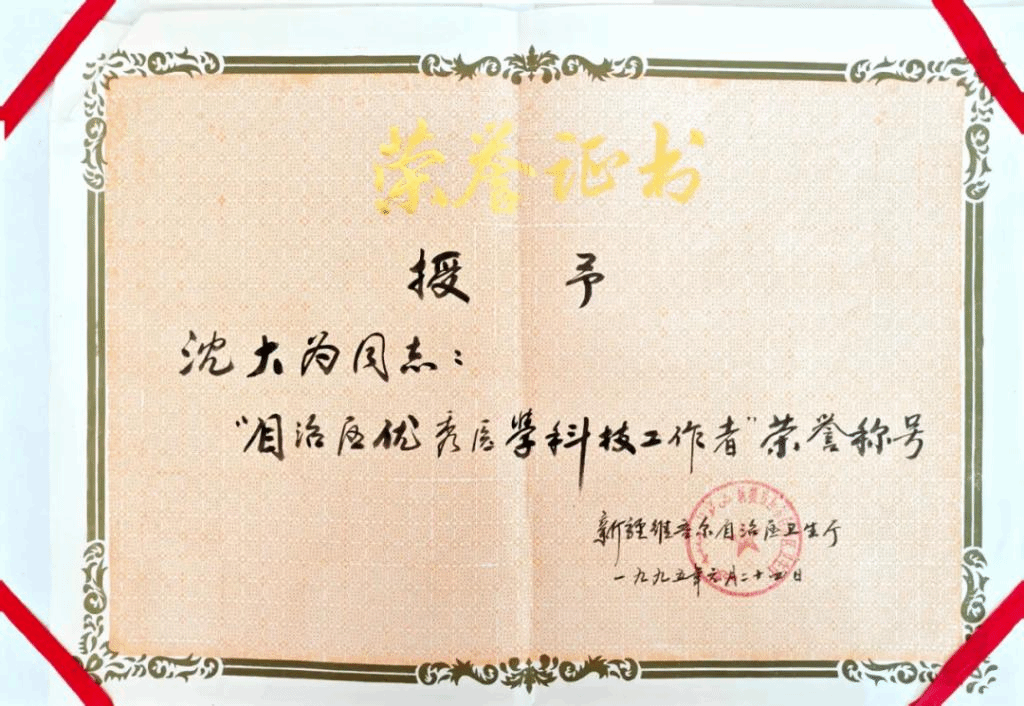 荣誉证书
授予
沈大为同志：
“自治区优秀医学科技工作者”荣誉称号
新疆维吾尔自治区卫生厅
一九九五年元月二十四日